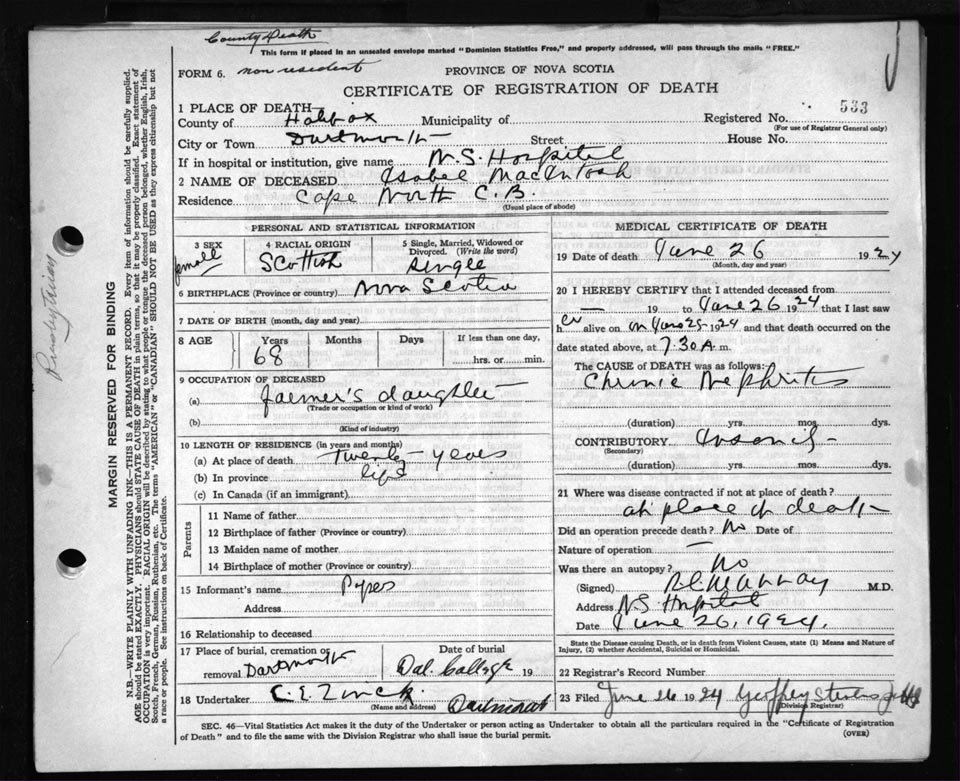 County Death
This form if placed in an unsealed envelope marked "Dominion Statistics Free," and properly addressed, will pass through the mails "FREE."
FORM 6. non resident PROVINCE OF NOVA SCOTIA
CERTIFICATE OF REGISTRATION OF DEATH
1 PLACE OF DEATH
County of Halifax Municipality of Registered No. 533
(For use of Registrar General only)
City or Town Dartmouth Street House No.
If in hospital or institution, give name N.S. Hospital
2 NAME OF DECEASED Isabel MacIntosh
Residence Cape North C.B.
(Usual place of abode)
PERSONAL AND STATISTICAL INFORMATION
3 SEX 4 RACIAL ORIGIN 5 Single, Married, Widowed or Divorced. (Write the word)
Scottish Single
6 BIRTHPLACE (Province or country) Nova Scotia
7 DATE OF BIRTH (month, day and year)
8 AGE Years Months Days If less than one day,
68 hrs. or min.
9 OCCUPATION OF DECEASED
(a) Farmer's daughter
(Trade or occupation or kind of work)
(b)
(Kind of industry)
10 LENGTH OF RESIDENCE (in years and months)
(a) At place of death twenty years
(b) In province life
(c) In Canada (if an immigrant)
Parents
11 Name of father
12 Birthplace of father (Province or country)
13 Maiden name of mother
14 Birthplace of mother (Province or country)
15 Informant's name
Address
16 Relationship to deceased
17 Place of burial, cremation or removal Dartmouth Date of burial Dal. College 19
18 Undertaker C. E. Zinck
(Name and address)
MEDICAL CERTIFICATE OF DEATH
19 Date of death June 26 1924
(Month, day and year)
20 I HEREBY CERTIFY that I attended deceased from
— 19 to June 26 1924 that I last saw
her alive on June 25 1924 and that death occurred on
date stated above, at 7.30 A. m.
The CAUSE of DEATH was as follows:
Chronic Nephritis
(duration) yrs. mos. dys.
CONTRIBUTORY
(Secondary)
(duration) yrs. mos. dys.
21 Where was disease contracted if not at place of death?
at place of death
Did an operation precede death? No Date of
Nature of operation —
Was there an autopsy? No
(Signed) M.D.
Address N.S. Hospital
Date June 26, 1924.
State the Disease causing Death, or in death from Violent Causes, state (1) Means and Nature of Injury, (2) whether Accidental, Suicidal or Homicidal.
22 Registrar's Record Number
23 Filed June 26 1924 Geoffrey Stevens
(Division Registrar)
SEC. 46—Vital Statistics Act makes it the duty of the Undertaker or person acting as Undertaker to obtain all the particulars required in the "Certificate of Registration
of Death" and to file the same with the Division Registrar who shall issue the burial permit. (OVER)
Presbyterian
MARGIN RESERVED FOR BINDING
N.B.—WRITE PLAINLY WITH UNFADING INK—THIS IS A PERMANENT RECORD. Every item of information should be carefully supplied.
AGE should be stated EXACTLY. PHYSICIANS should STATE CAUSE OF DEATH in plain terms, so that it may be properly classified. Exact statement of
OCCUPATION is very important. RACIAL ORIGIN will be described by stating to what people or tongue the deceased person belonged, whether English, Irish,
Scotch, French, German, Russian, Ruthenian, etc. The terms "AMERICAN" or "CANADIAN" SHOULD NOT BE USED as they express citizenship but not
a race or people. See instructions on back of Certificate.